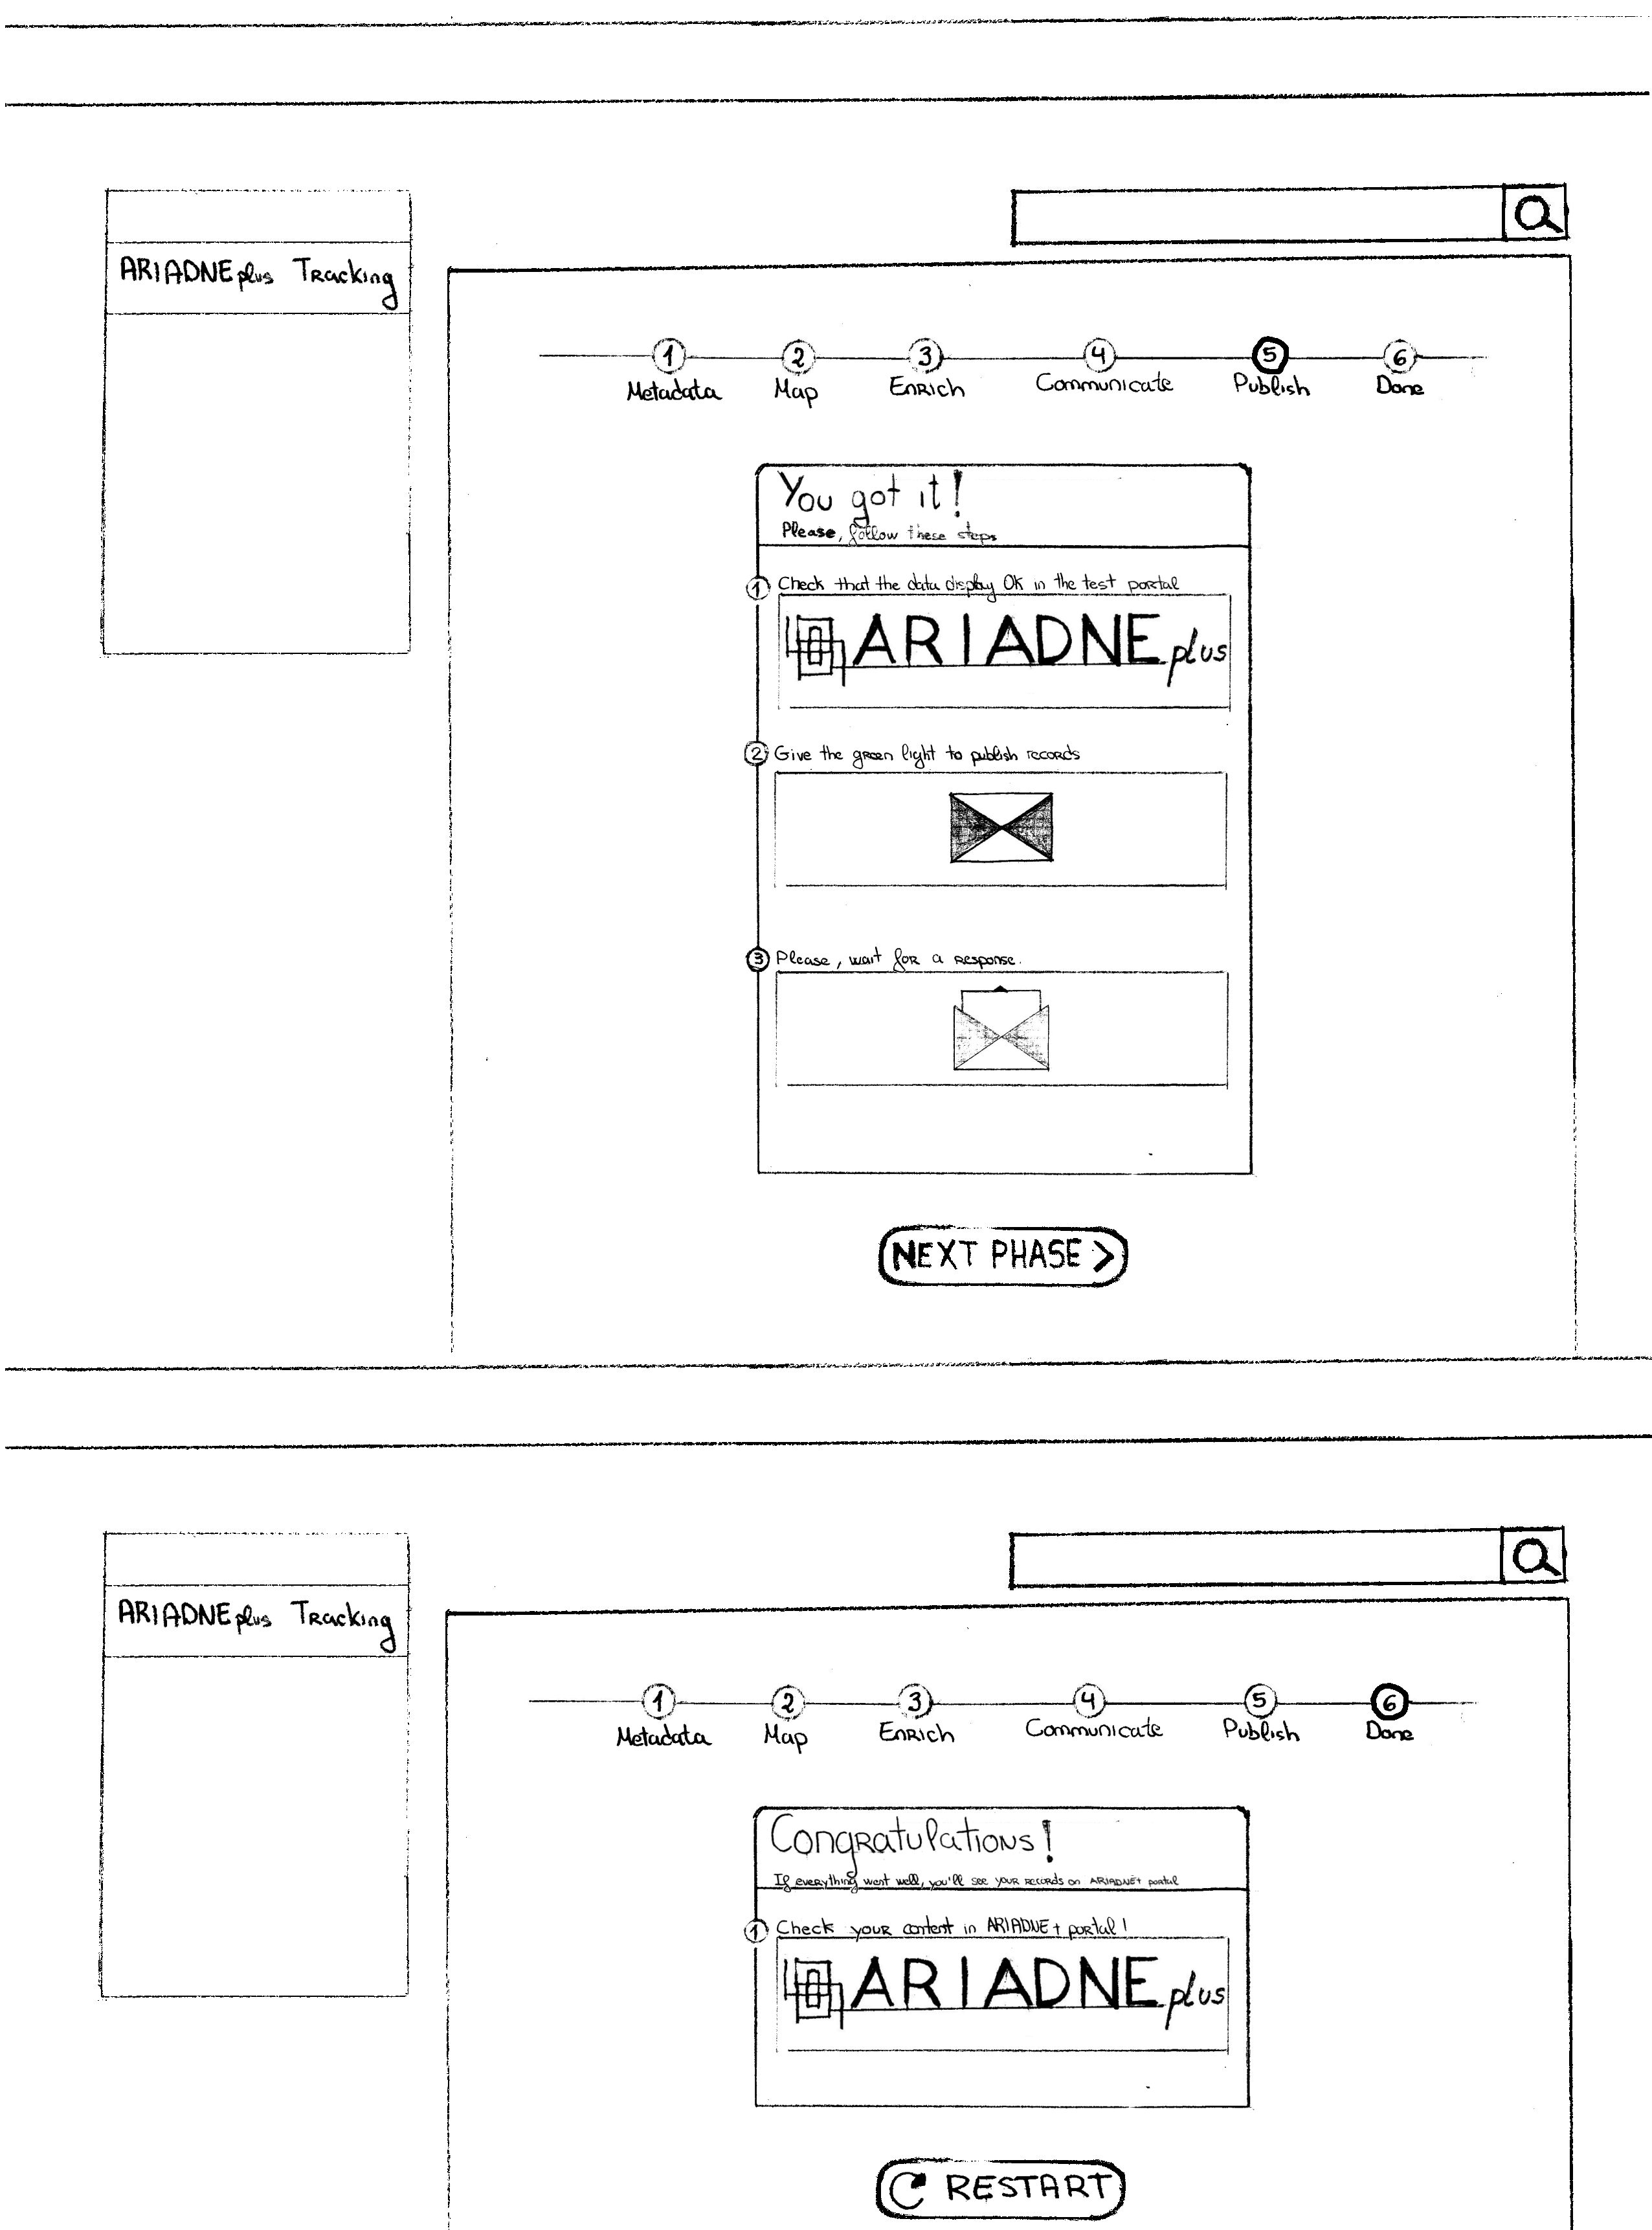 ARIADNEplus Tracking
1 2 3 4 5 6
Metadata Map Enrich Communicate Publish Done
You got it!
Please, follow these steps
1 Check that the data display OK in the test portal
ARIADNEplus
2 Give the green light to publish records
3 Please, wait for a response.
NEXT PHASE >
ARIADNEplus Tracking
1 2 3 4 5 6
Metadata Map Enrich Communicate Publish Done
Congratulations!
If everything went well, you'll see your records on ARIADNE+ portal
1 Check your content in ARIADNE+ portal!
ARIADNEplus
RESTART